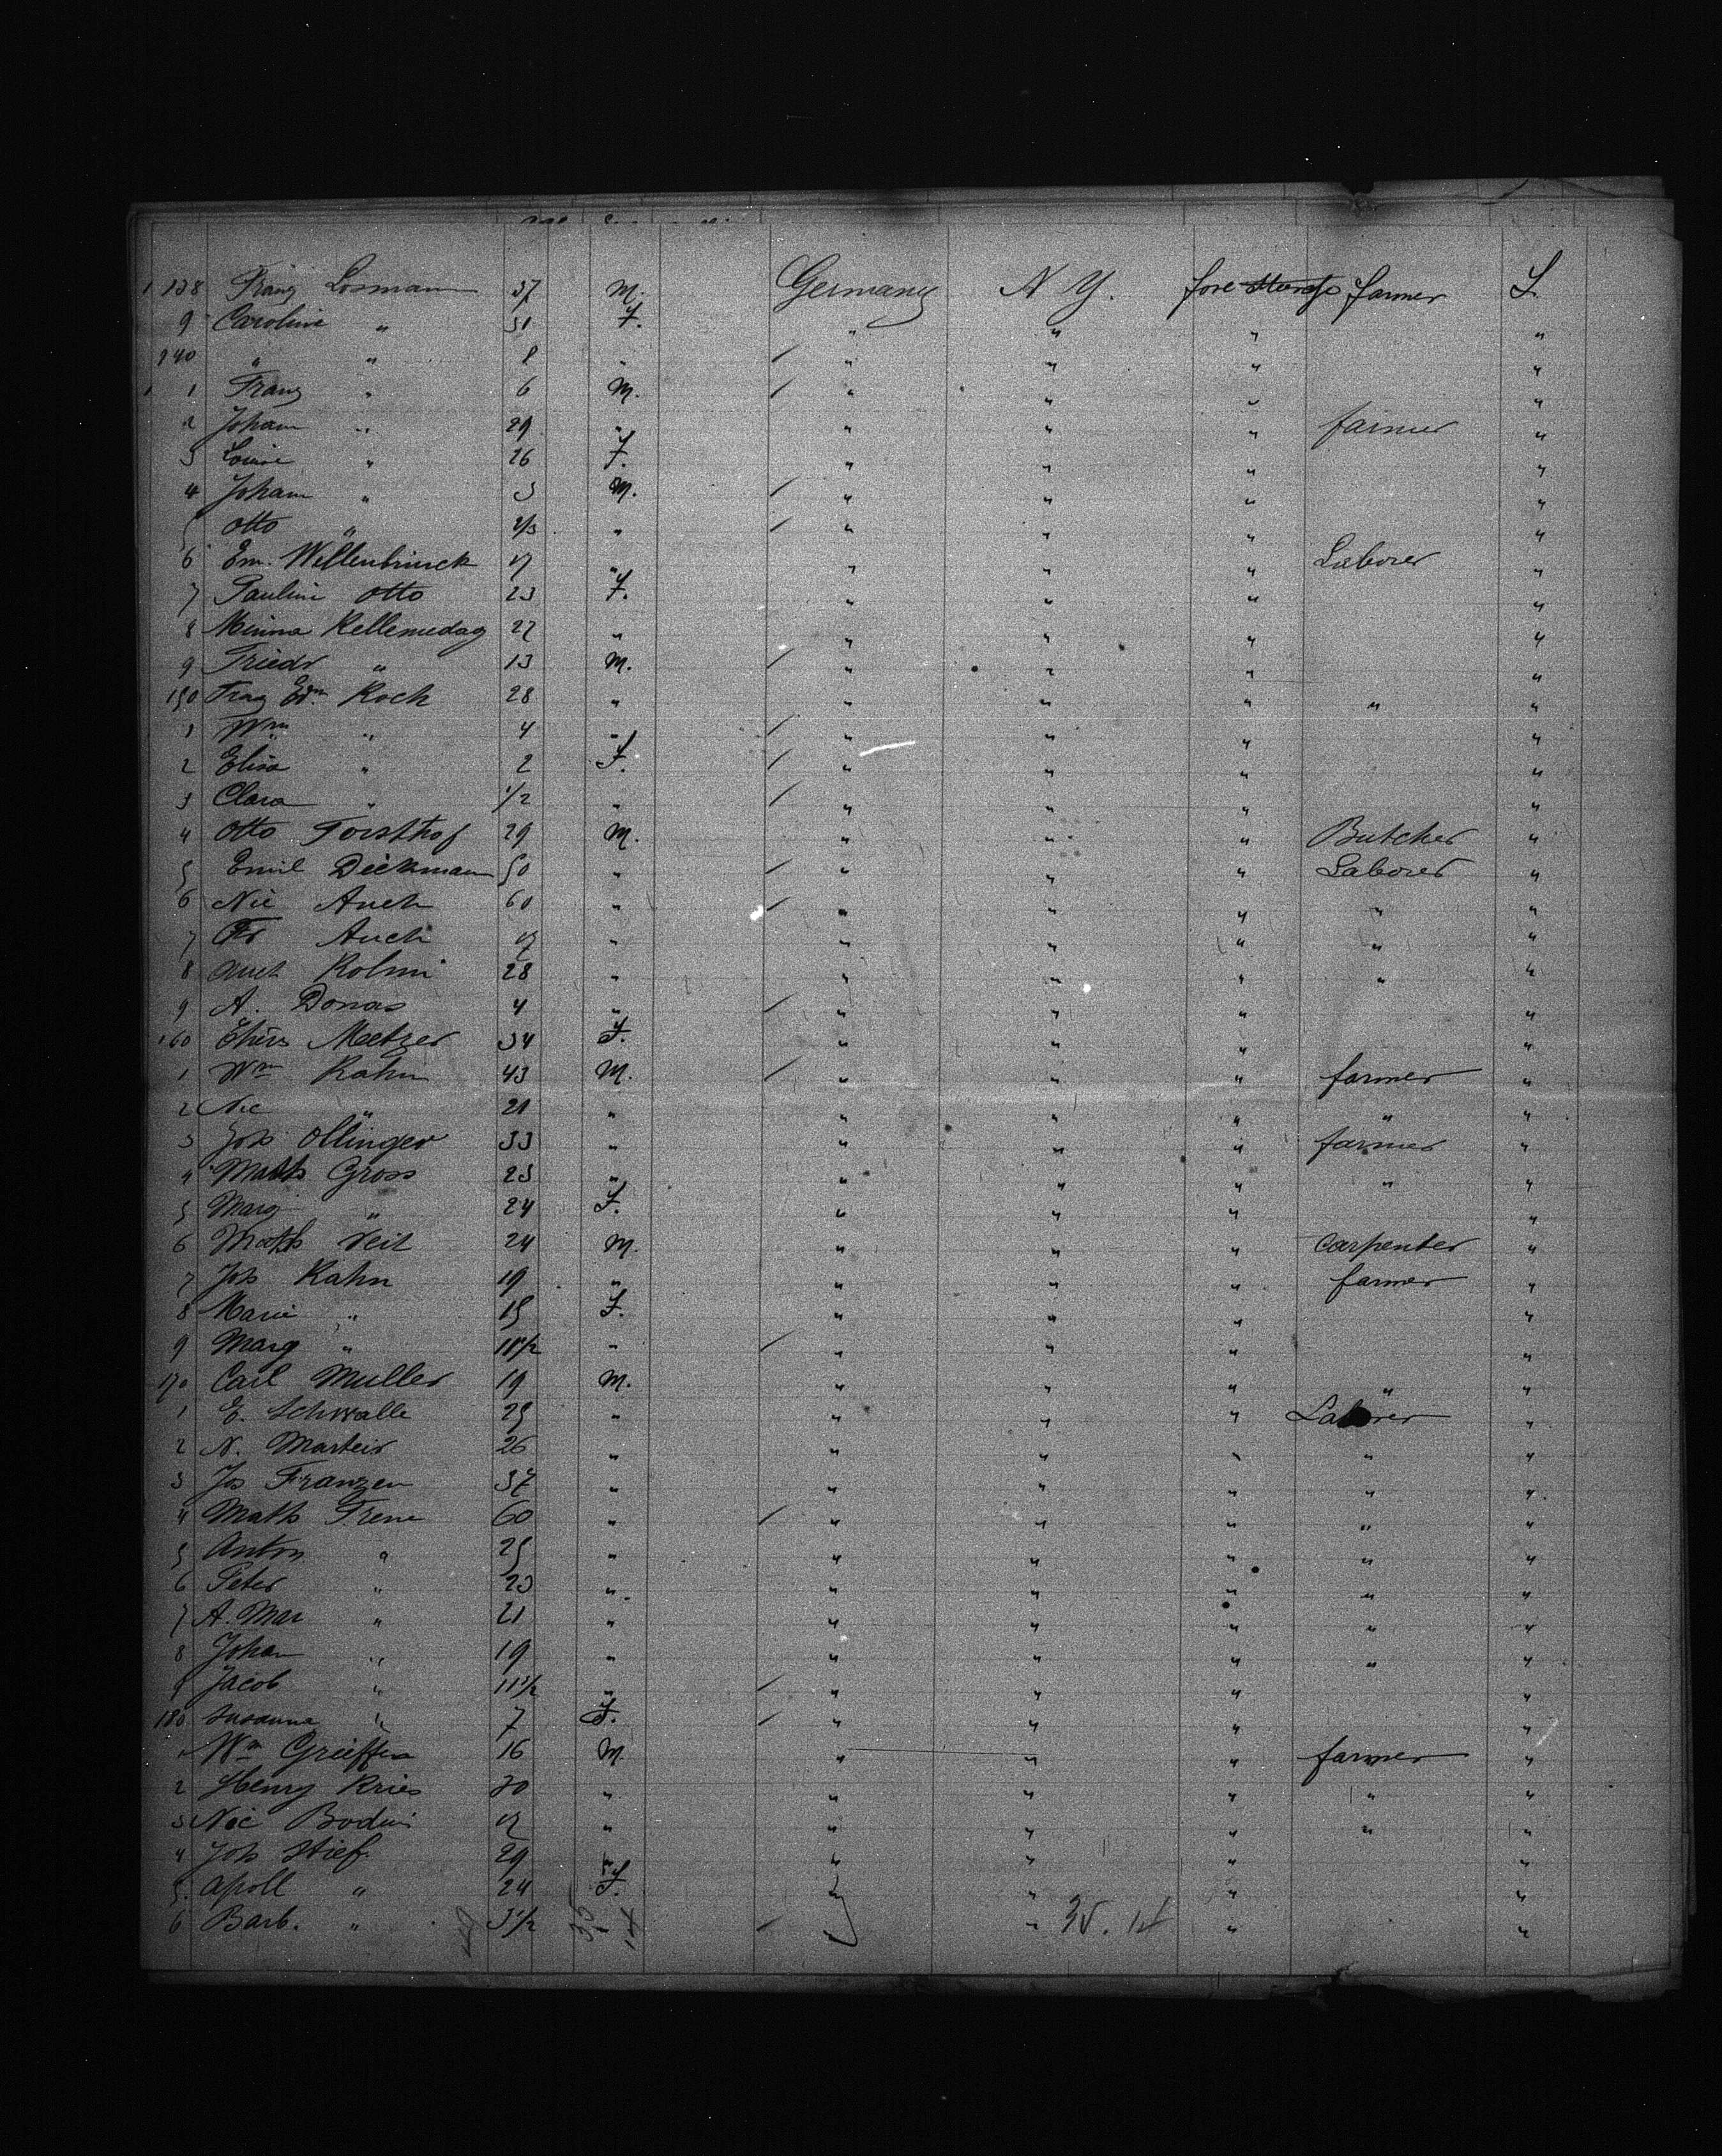 138 Franz Losmann 37 M. Germany N. Y. fore steerage farmer L.
9 Caroline " 31 F. " " " "
140 " " 8 " " " " "
1 Franz " 6 M. " " " "
2 Johann " 29 " " " " farmer "
3 Louise " 26 F. " " " "
4 Johann " 3 M. " " " "
5 Otto " " " " " "
6 Em. Wellenbrinck 17 " " " " Laborer "
7 Pauline Otto 23 F. " " " "
8 Minna Kellemedag 27 " " " " "
9 Friedr " 13 M. " " " "
150 Edm. Koch 28 " " " " " "
1 Wm " 4 " " " " "
2 Elisa " 2 F. " " " "
3 Clara " 1/2 " " " " "
4 Otto Forsthof 29 M. " " " Butcher "
5 Emil Dieckmann 50 " " " " Laborer "
6 Nic Auch 60 " " " " " "
7 Fr Auch 17 " " " " " "
8 28 " " " " " "
9 A. Donas 4 " " " " "
160 Metzer 34 F. " " " "
1 Wm Kahn 43 M. " " " farmer "
2 Nic " 21 " " " " " "
3 Joh Ollinger 33 " " " " farmer "
4 Math Gross 23 " " " " " "
5 Marg " 24 F. " " " "
6 Math Veit 24 M. " " " Carpenter "
7 Joh Kahn 19 " " " " farmer "
8 Marie " 15 F. " " " "
9 Marg " 11 1/2 " " " " "
170 Carl Muller 19 M. " " " " "
1 E. Schwalle 25 " " " " Laborer "
2 N. 26 " " " " " "
3 Jos Franzen 37 " " " " " "
4 Math Trene 60 " " " " " "
5 Anton " 25 " " " " " "
6 Peter " 23 " " " " " "
7 A. Mar " 21 " " " " " "
8 Johan " 19 " " " " " "
9 Jacob " 11 1/2 " " " " "
180 Susanne " 7 F. " " " "
Wm Greiffen 16 M. " " " farmer "
2 Henry Kries 30 " " " " " "
3 Nic Bodwi 17 " " " " " "
4 Joh Stief 29 " " " " "
5 Apoll " 24 F. " " " "
6 Barb. " 3 1/2 " 35. 14 " "
35
14